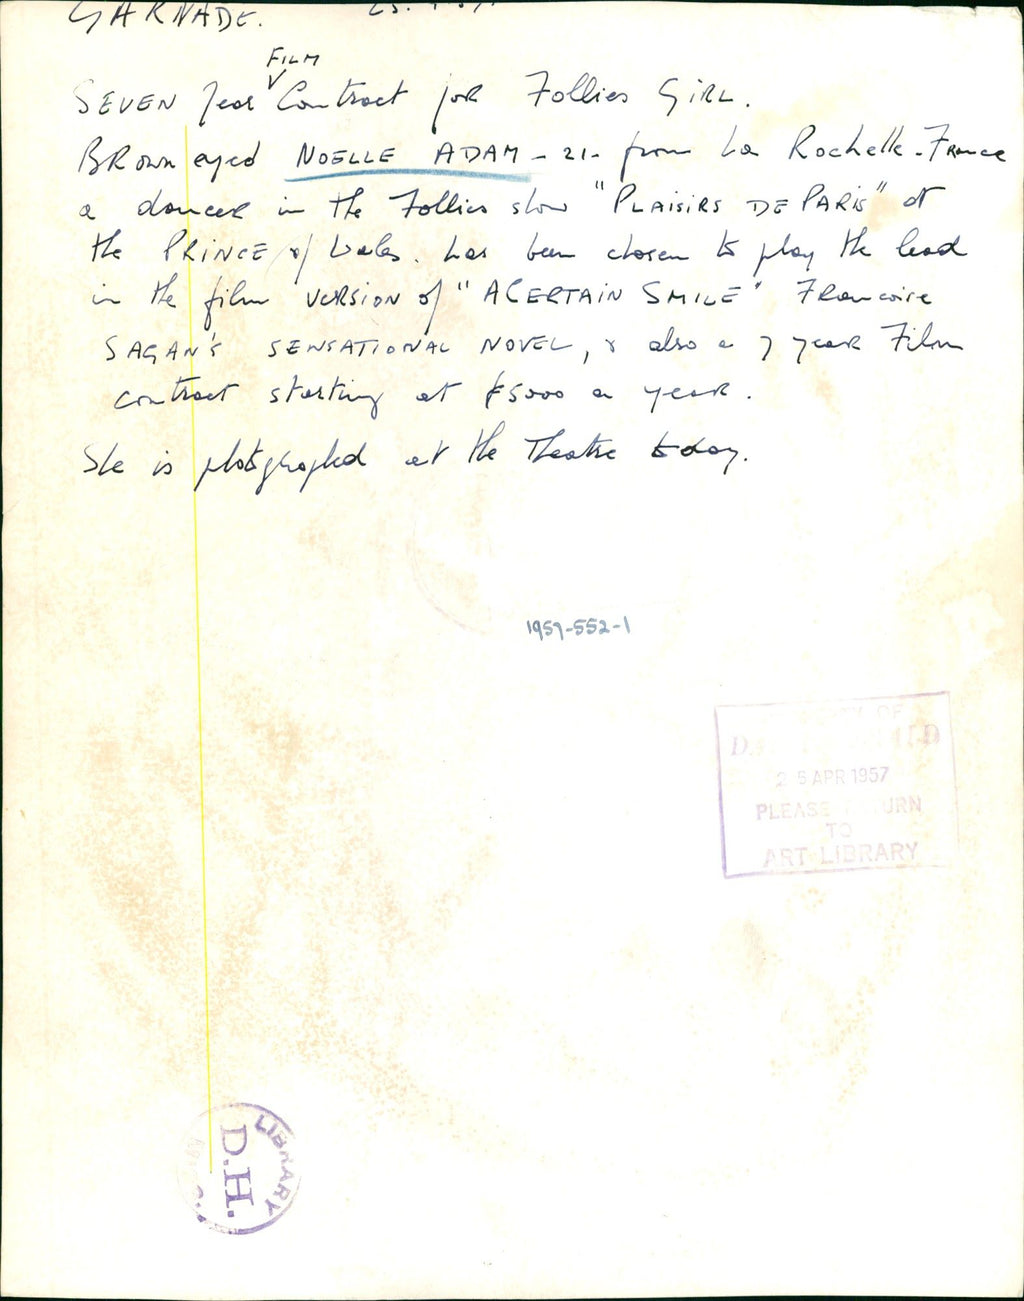 GARNADE.
FILM
SEVEN year Contract for Follies GIRL.
BRown eyed NOELLE ADAM - 21 - from La Rochelle - France
a dancer in the Follies show "PLAISIRS DE PARIS" at
the PRINCE of Wales. has been chosen to play the lead
in the film VERSION of "A CERTAIN SMILE" Francoise
SAGAN'S SENSATIONAL NOVEL, & also a 7 year Film
contract starting at £5000 a year.
She is photographed at the Theatre today.
1957-552-1
OF
25 APR 1957
PLEASE RETURN
TO
ART LIBRARY
LIBRARY
D.H.